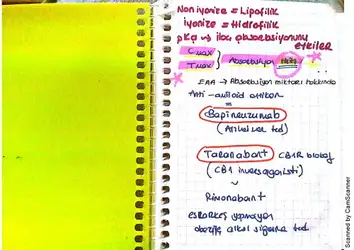 Noniyonize = Lipofilik
iyonize = Hidrofilik
pKa → ilaç absorbsiyonunu
etkiler
Cmax
Tmax } Absorbsiyon
EAA → Absorbsiyon miktarı hakkında
Anti-amiloid antikor
=
Bapineuzumab
(Alzheimer ted)
Taranabant CB1R blokaj
(CB1 invers agonisti)
Rimonabant
esrarkeş yapmayan
obezite alkol sigarna ted.
Scanned by CamScanner